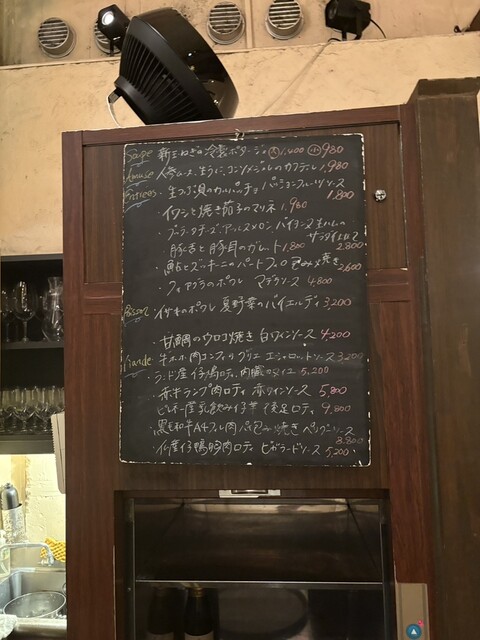 Soupe 新玉ねぎの冷製ポタージュ 大1,400 小980
Amuse 人参ムース、生うに、コンソメジュレのカクテル 1,980
Entrées 生つぶ貝のカルパッチョ パッションフルーツソース
1,800
・イワシと焼き茄子のマリネ 1,980
・ブラータチーズ、アールスメロン、バイヨンヌ生ハムの
サラダ仕立て
2,800
・豚舌と豚耳のガレット 1,800
・鮎とズッキーニのパートフィロ包み焼き
2,600
・フォアグラのポワレ マデラソース 4,800
Poisson イサキのポワレ 夏野菜のバイエルディ 3,200
・甘鯛のウロコ焼き 白ワインソース 4,200
Viande 牛ホホ肉コンフィのグリエ エシャロットソース 3,200
・ランド産仔鳩ロティ 内臓のソース 5,200
・赤牛ランプ肉ロティ 赤ワインソース 5,800
・ピレネー産乳飲み仔羊 後足ロティ 9,800
・黒毛和牛A4フィレ肉パイ包み焼き ペリグーソース
8,800
・仏産仔鴨胸肉ロティ ビガラードソース
5,200